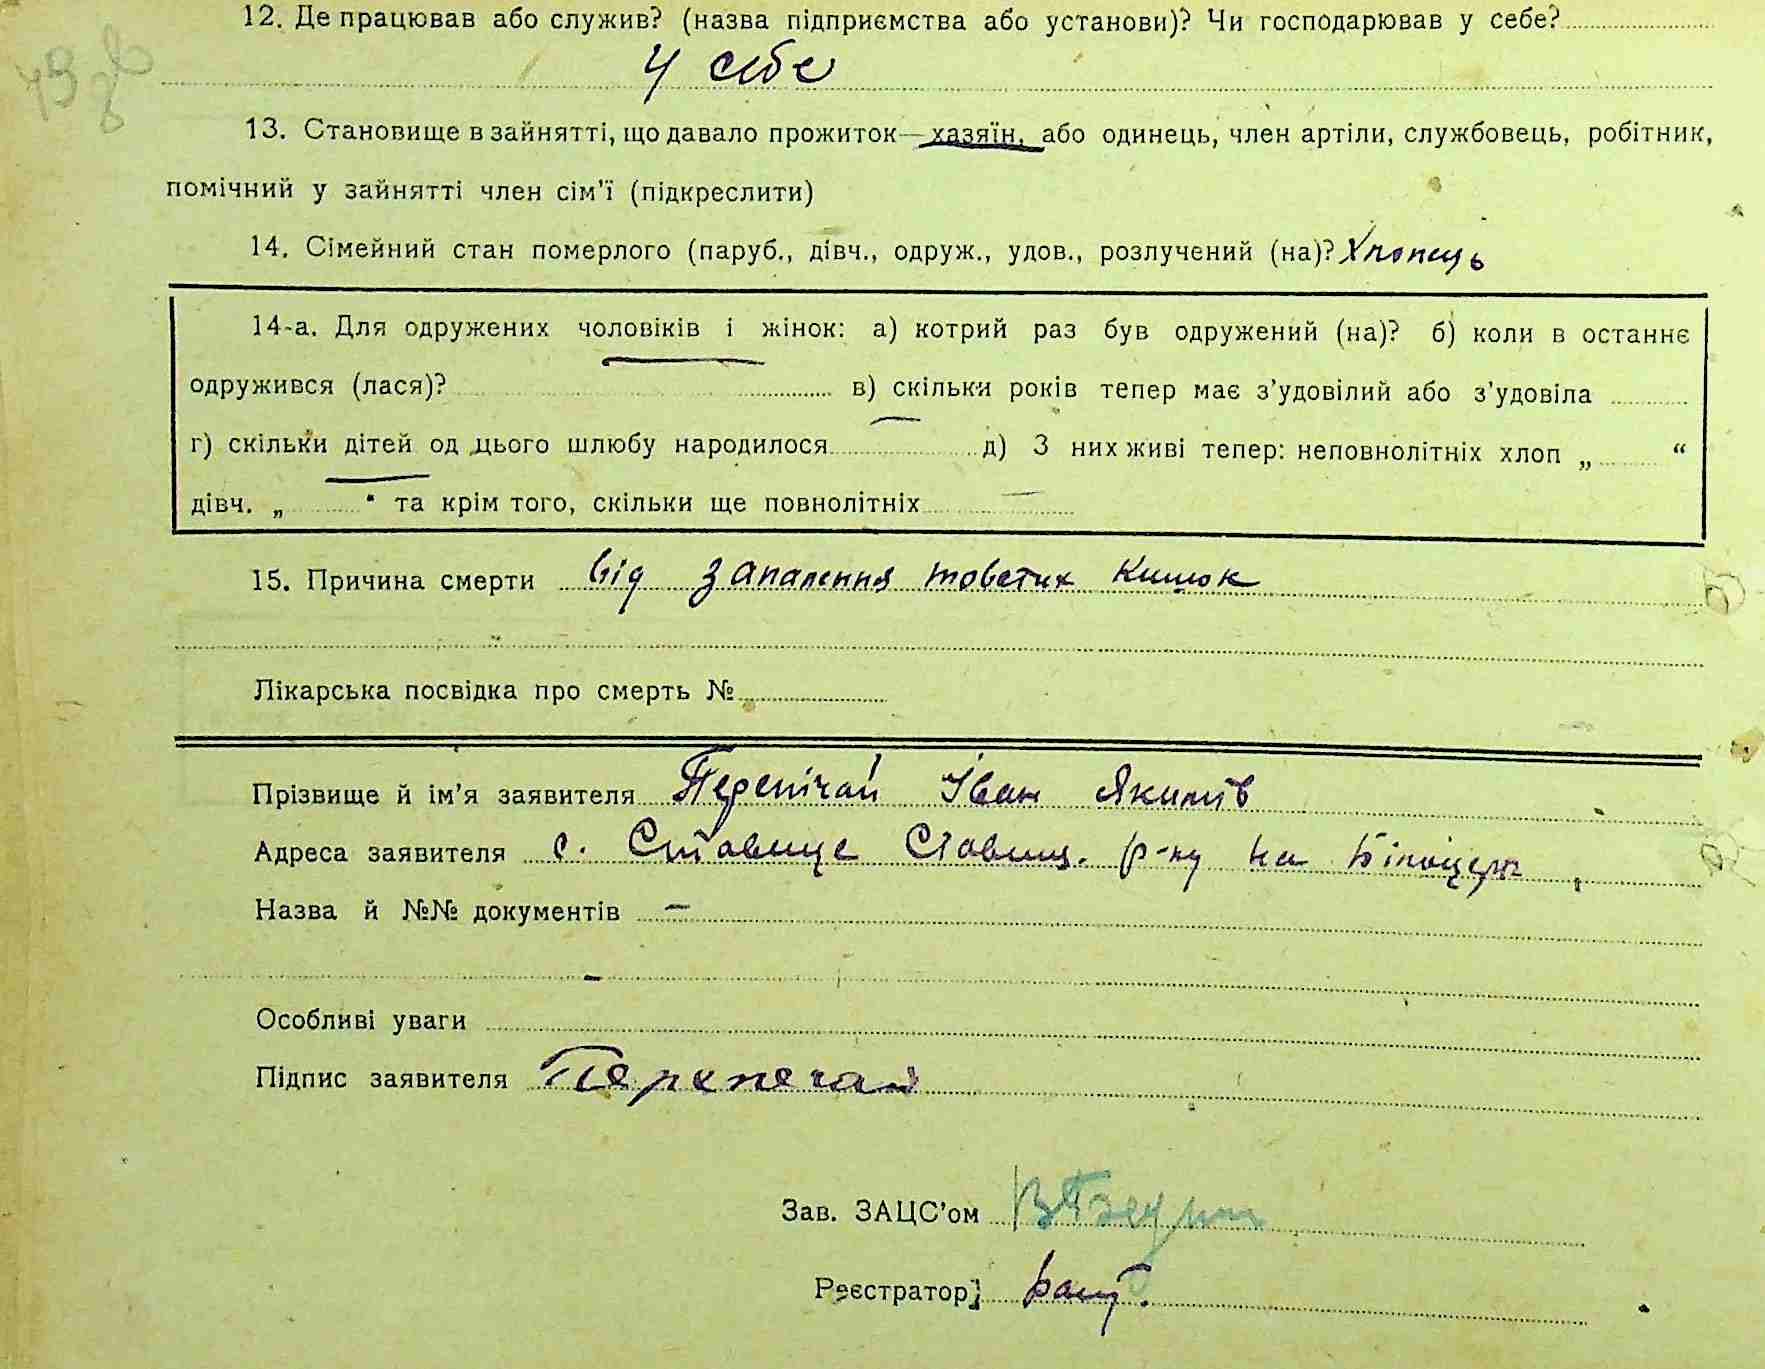 12. Де працював або служив? (назва підприємства або установи)? Чи господарював у себе?
У себе
13. Становище в зайнятті, що давало прожиток—хазяїн, або одинець, член артіли, службовець, робітник,
помічний у зайнятті член сім’ї (підкреслити)
14. Сімейний стан померлого (паруб., дівч., одруж., удов., розлучений (на)? Хлопець
14-а. Для одружених чоловіків і жінок: а) котрий раз був одружений (на)? б) коли в останнє
одружився (лася)? в) скільки років тепер має з’удовілий або з’удовіла
г) скільки дітей од цього шлюбу народилося д) З них живі тепер: неповнолітніх хлоп „ “
дівч. „ “ та крім того, скільки ще повнолітніх
15. Причина смерти від запалення товстих кишок
Лікарська посвідка про смерть №
Прізвище й ім’я заявителя Перепічай Іван Якимів
Адреса заявителя с. Ставище Ставищ. р-ну на Білоцер
Назва й №№ документів —
-
Особливі уваги
Підпис заявителя Перепечай
Зав. ЗАЦС’ом
Реєстратор